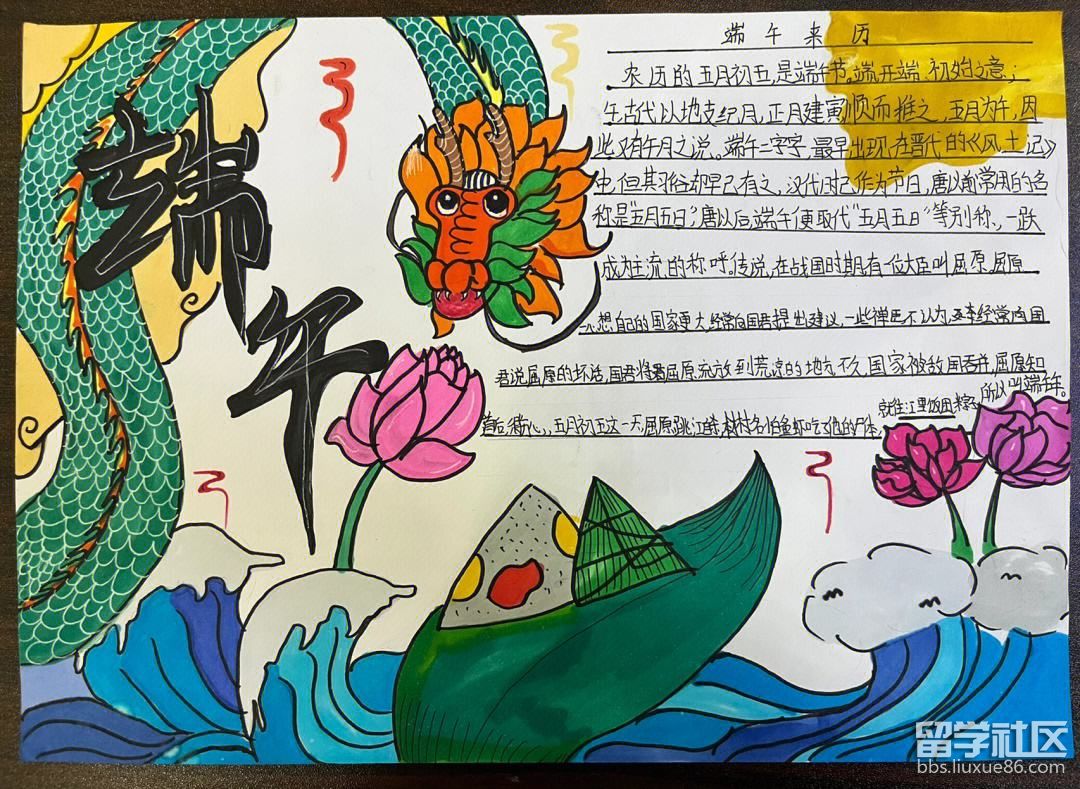 端午
端午来历
农历的五月初五,是端午节。端,开端、初始之意;
午,古代以地支纪月,正月建寅顺而推之,五月为午,因
此又有午月之说。端午二字字,最早出现在晋代的《风土记》
中,但其俗却早已有之,汉代时已作为节日,唐以前常用的名
称是“五月五日”,唐以后,端午便取代“五月五日”等别称,一跃
成为主流的称呼。传说,在战国时期,有一位大臣叫屈原,屈原
想自己的国家更大,经常向国君提出建议,一些 臣不认为 经常向国
君说屈原的坏话,国君将 屈原流放到荒凉的地方,不久,国家被敌国吞并,屈原知
道后, 心,五月初五这一天,屈原跳江 村 吃了他的尸体,
就往江里
所以叫端午。
留学社区
bbs.liuxue86.com